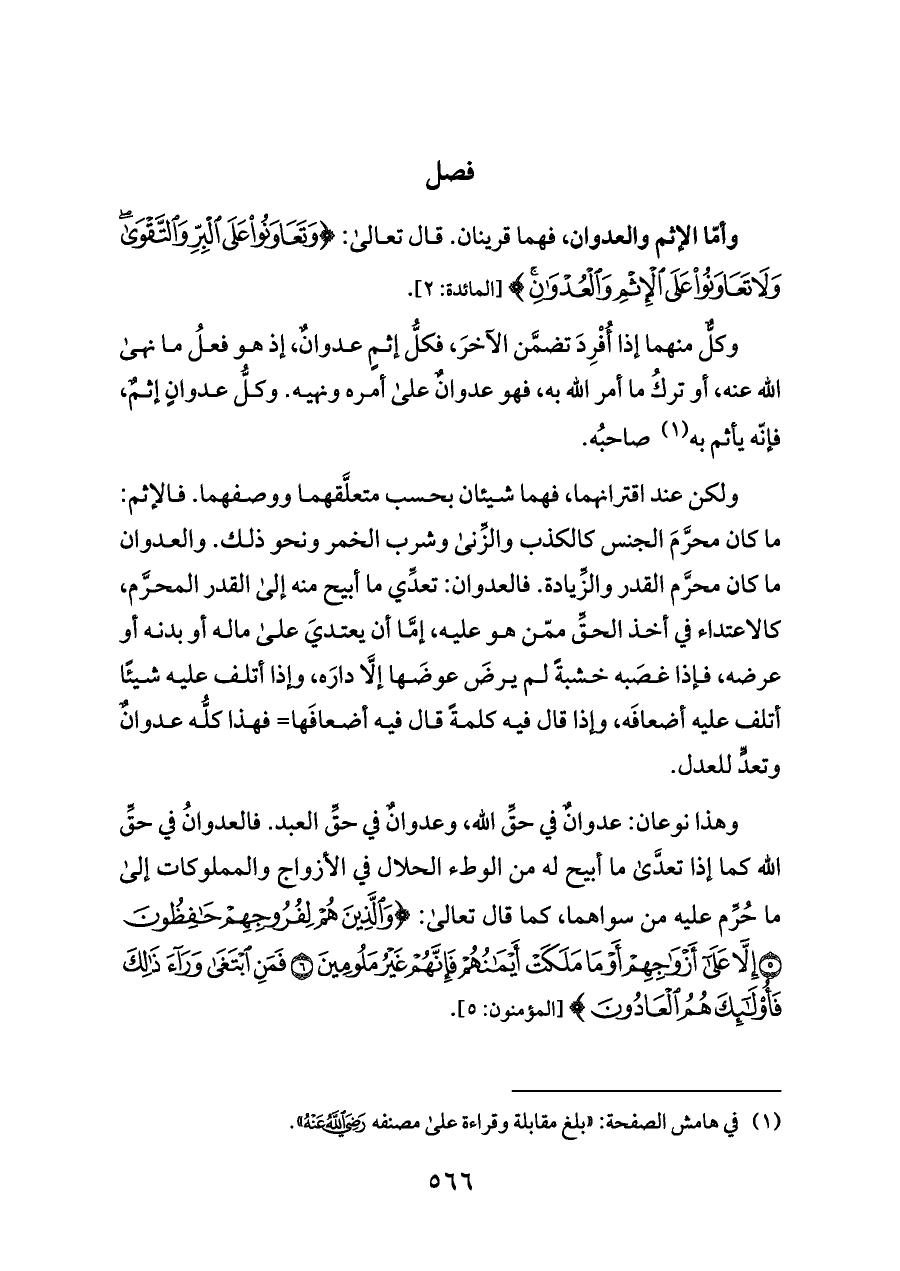 فصل
وأمّا الإثم والعدوان، فهما قرينان. قال تعالىٰ: ﴿وَتَعَاوَنُواْ عَلَى ٱلۡبِرِّ وَٱلتَّقۡوَىٰۖ
وَلَا تَعَاوَنُواْ عَلَى ٱلۡإِثۡمِ وَٱلۡعُدۡوَٰنِۚ﴾ [المائدة: ٢].
وكلٌّ منهما إذا أُفْرِدَ تضمَّن الآخرَ، فكلُّ إثمٍ عدوانٌ، إذ هو فعلُ ما نهىٰ
الله عنه، أو تركُ ما أمر الله به، فهو عدوانٌ علىٰ أمره ونهيه. وكلُّ عدوانٍ إثمٌ،
فإنّه يأثم به(١) صاحبُه.
ولكن عند اقترانهما، فهما شيئان بحسب متعلَّقهما ووصفهما. فالإثم:
ما كان محرَّمَ الجنس كالكذب والزِّنىٰ وشرب الخمر ونحو ذلك. والعدوان
ما كان محرَّم القدر والزِّيادة. فالعدوان: تعدِّي ما أبيح منه إلىٰ القدر المحرَّم،
كالاعتداء في أخذ الحقِّ ممّن هو عليه، إمَّا أن يعتديَ علىٰ ماله أو بدنه أو
عرضه، فإذا غصَبه خشبةً لم يرضَ عوضَها إلَّا دارَه، وإذا أتلف عليه شيئًا
أتلف عليه أضعافَه، وإذا قال فيه كلمةً قال فيه أضعافَها= فهذا كلُّه عدوانٌ
وتعدٍّ للعدل.
وهذا نوعان: عدوانٌ في حقِّ الله، وعدوانٌ في حقِّ العبد. فالعدوانُ في حقِّ
الله كما إذا تعدَّىٰ ما أبيح له من الوطء الحلال في الأزواج والمملوكات إلىٰ
ما حُرِّم عليه من سواهما، كما قال تعالىٰ: ﴿وَٱلَّذِينَ هُمۡ لِفُرُوجِهِمۡ حَٰفِظُونَ
٥ إِلَّا عَلَىٰٓ أَزۡوَٰجِهِمۡ أَوۡ مَا مَلَكَتۡ أَيۡمَٰنُهُمۡ فَإِنَّهُمۡ غَيۡرُ مَلُومِينَ ٦ فَمَنِ ٱبۡتَغَىٰ وَرَآءَ ذَٰلِكَ
فَأُوْلَٰٓئِكَ هُمُ ٱلۡعَادُونَ﴾ [المؤمنون: ٥].
(١) في هامش الصفحة: «بلغ مقابلة وقراءة علىٰ مصنفه رَضِيَ ٱللَّهُ عَنْهُ».
٥٦٦